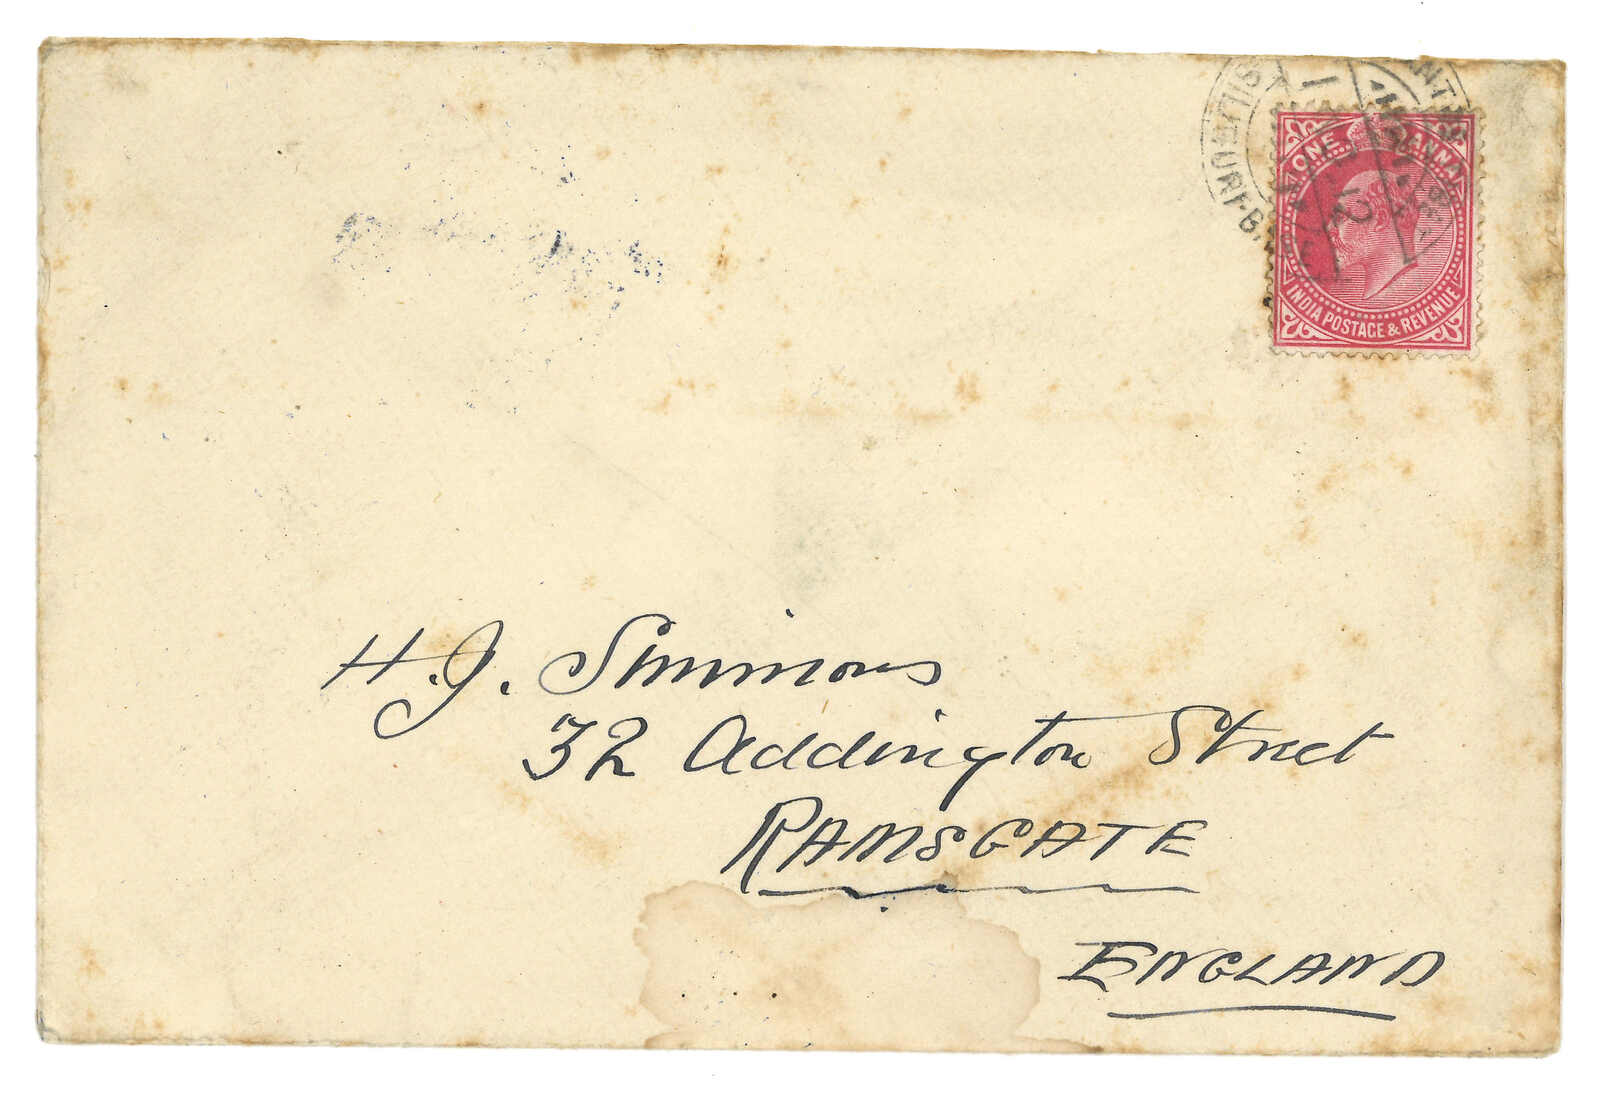 ONE ANNA
INDIA POSTAGE & REVENUE
H. J. Simmons
32 Addington Street
RAMSGATE
ENGLAND